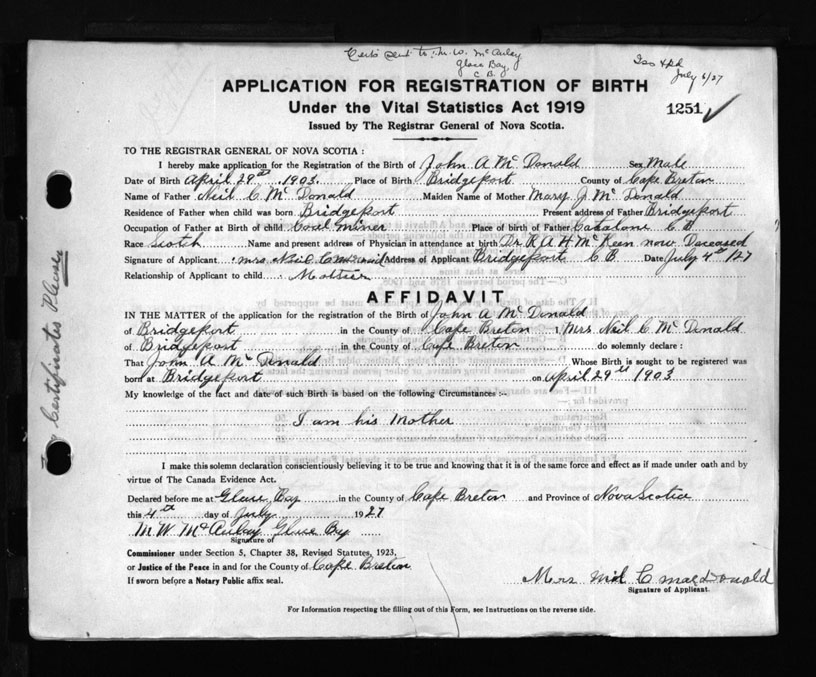 Certs sent to M.W. McAulay
Glace Bay,
C B.
July 6/27
APPLICATION FOR REGISTRATION OF BIRTH
Under the Vital Statistics Act 1919
1251
Issued by The Registrar General of Nova Scotia.
TO THE REGISTRAR GENERAL OF NOVA SCOTIA :
I hereby make application for the Registration of the Birth of John A McDonald Sex Male
Date of Birth April 29th 1903 Place of Birth Bridgeport County of Cape Breton
Name of Father Neil C McDonald Maiden Name of Mother Mary J McDonald
Residence of Father when child was born Bridgeport Present address of Father Bridgeport
Occupation of Father at Birth of child Coal miner Place of birth of Father Catalone C B
Race Scotch Name and present address of Physician in attendance at birth Dr. R A H McKeen now Deceased
Signature of Applicant Mrs Neil C Address of Applicant Bridgeport C B Date July 4th /27
Relationship of Applicant to child Mother
AFFIDAVIT
IN THE MATTER of the application for the registration of the Birth of John A McDonald
of Bridgeport in the County of Cape Breton I, Mrs. Neil C McDonald
of Bridgeport in the County of Cape Breton do solemnly declare :
That John A McDonald Whose Birth is sought to be registered was
born at Bridgeport on April 29th 1903
My knowledge of the fact and date of such Birth is based on the following Circumstances :-
I am his Mother
I make this solemn declaration conscientiously believing it to be true and knowing that it is of the same force and effect as if made under oath and by
virtue of The Canada Evidence Act.
Declared before me at Glace Bay in the County of Cape Breton and Province of Nova Scotia
this 4th day of July 1927
M W McAulay Glace Bay
Signature of
Commissioner under Section 5, Chapter 38, Revised Statutes, 1923,
or Justice of the Peace in and for the County of Cape Breton
If sworn before a Notary Public affix seal.
Mrs Neil C MacDonald
Signature of Applicant.
For Information respecting the filling out of this Form, see Instructions on the reverse side.
Certificates Please